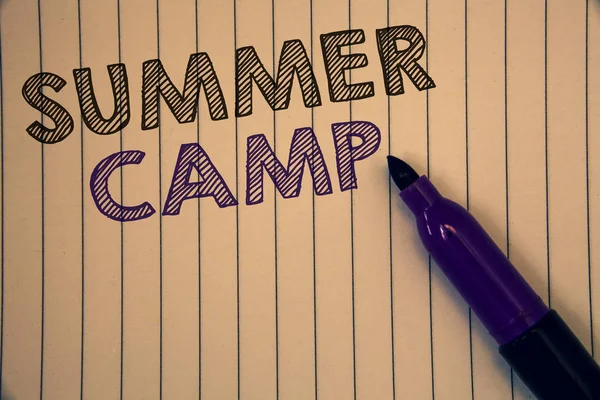 SUMMER
CAMP